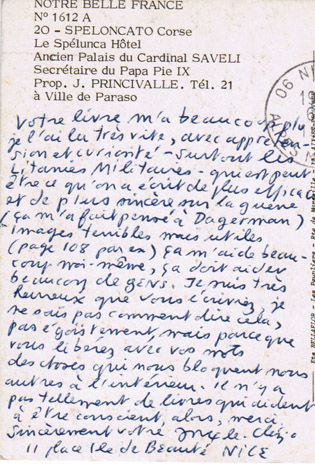 NOTRE BELLE FRANCE
N° 1612 A
20 - SPELONCATO Corse
Le Spélunca Hôtel
Ancien Palais du Cardinal SAVELI
Secrétaire du Papa Pie IX
Prop. J. PRINCIVALLE. Tél. 21
à Ville de Paraso
Votre livre m'a beaucoup plu
je l'ai lu très vite, avec appréhen-
sion et curiosité - surtout les
Litanies Militaires - qui est peut
être ce qu'on a écrit de plus efficace
et de plus sincère sur la guerre
(ça m'a fait pensé à Dagerman)
Images terribles mais utiles
(page 108 par ex) ça m'aide beau-
coup moi-même, ça doit aider
beaucoup de gens. Je suis très
heureux que vous l'écriviez, je
ne sais pas comment dire cela,
pas égoïstement, mais parce que
vous libérez avec vos mots
des choses qui nous bloquent nous
autres à l'intérieur. Il n'y a
pas tellement de livres qui aident
à être conscient, alors, merci,
Sincèrement votre
11 place Ile de Beauté NICE
06 NI